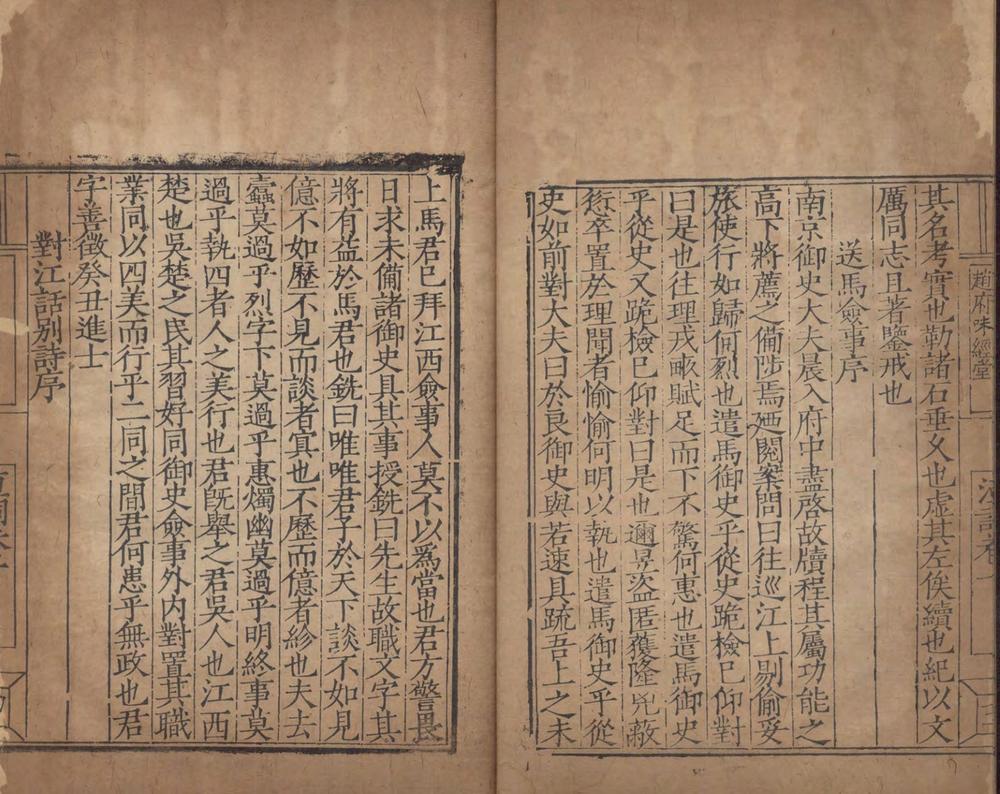 趙府味經堂
其名考實也勒諸石垂乆也虛其左俟續也紀以文
厲同志且著鑒戒也
送馬僉事序
南京御史大夫晨入府中盡啓故牘程其屬功能之
高下將薦之備陟焉廼閱案問曰往巡江上剔偷妥
旅使行如歸何烈也遣馬御史乎從史跪檢已仰對
曰是也往理戎畞賦足而下不驚何惠也遣馬御史
乎從史又跪檢已仰對曰是也邇旻盜匿獲隆兇敵
愆卒置於理聞者愉愉何明以執也遣馬御史乎從
史如前對大夫曰於良御史與若速具疏吾上之未
上馬君已拜江西僉事人莫不以爲當也君方警晨
日求未備諸御史具其事授銑曰先生故職文字其
將有益於馬君也銑曰唯唯君子於天下談不如見
億不如歷不見而談者冥也不歷而億者紾也夫去
蠧莫過乎烈字下莫過乎惠燭幽莫過乎明終事莫
過乎執四者人之美行也君旣舉之君吳人也江西
楚也吳楚之民其習好同御史僉事外内對置其職
業同以四美而行乎二同之間君何患乎無政也君
字善徵癸丑進士
對江話别詩序